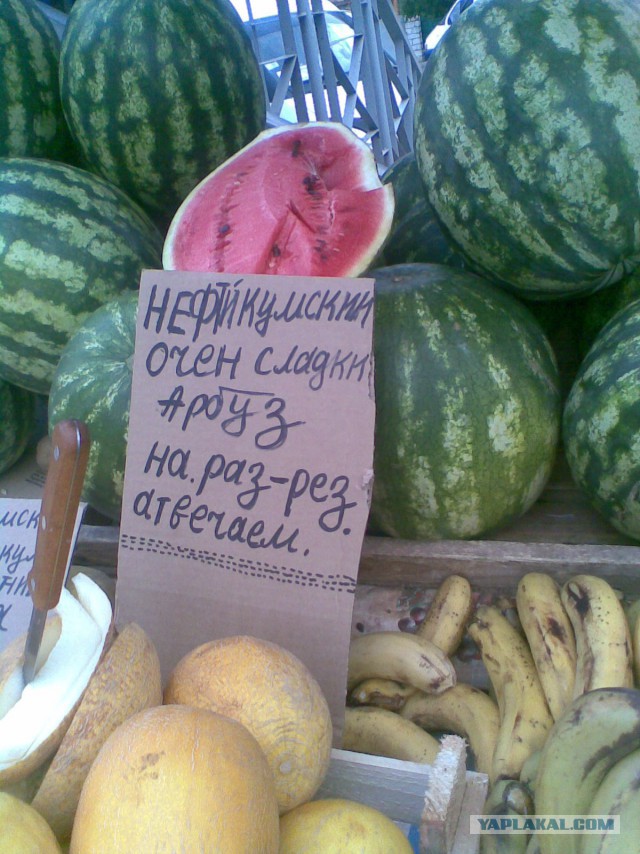 НЕФТЙКУМСКИЙ
ОЧЕН СЛАДКИ
Арбуз
на.раз-рез.
атвечаем.
YAPLAKAL.COM